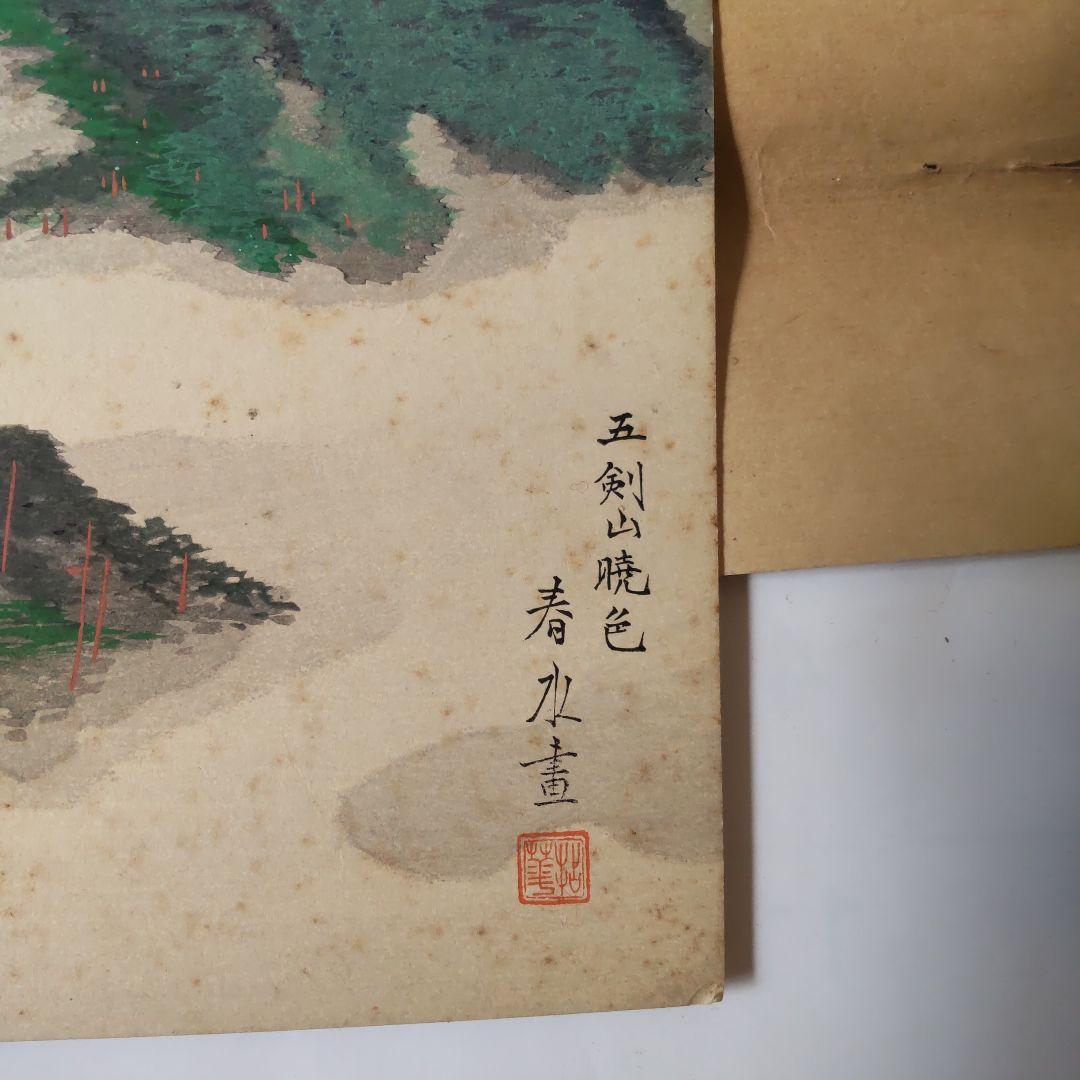 五剣山暁色
春水畫